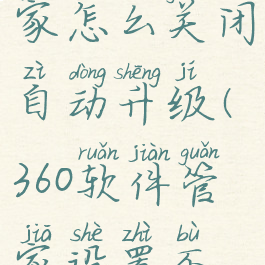 家怎么关闭
zì dòng shēng jí
自动升级(
ruǎn jiàn guǎn
360软件管
jiā shè zhì bù
家设置不